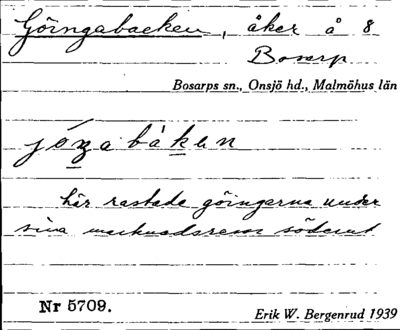 Göingabacken, åker å 8
Bosarp
Bosarps sn., Onsjö hd., Malmöhus län
här rastade göingarna under
sina marknadsresor söderut
Nr 5709.
Erik W. Bergenrud 1939